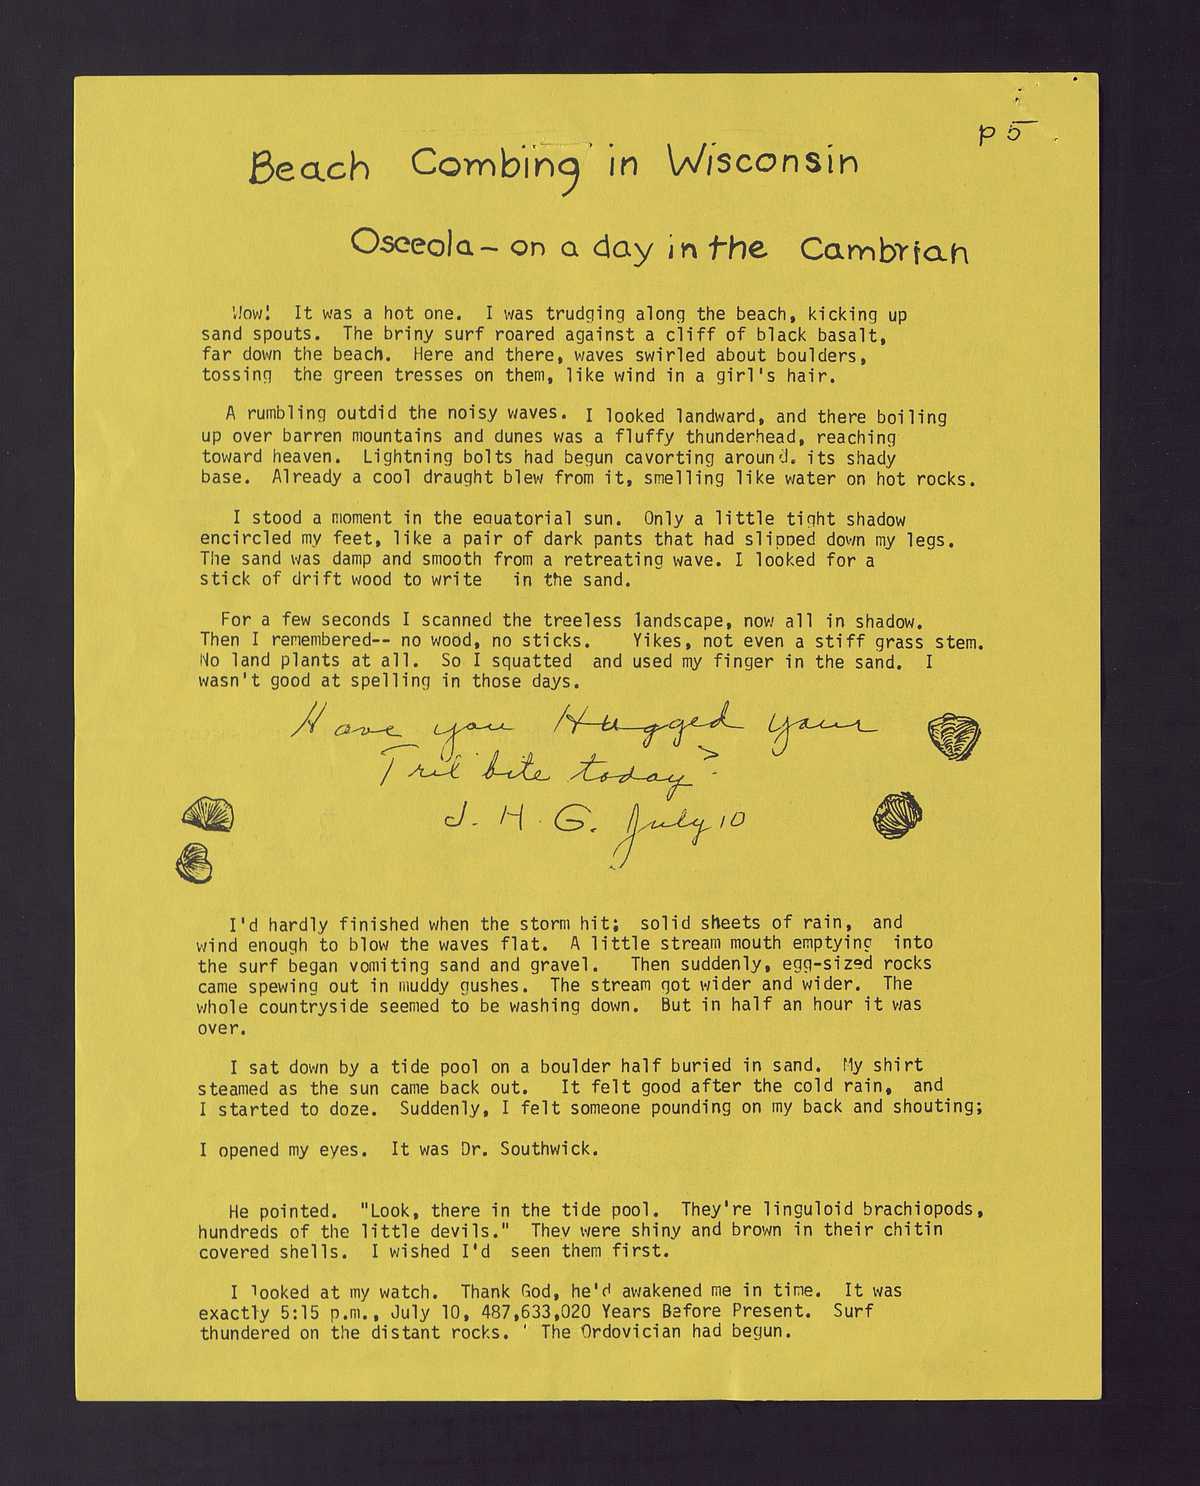 p 5
Beach Combing in Wisconsin
Osceola - on a day in the Cambrian
Wow! It was a hot one. I was trudging along the beach, kicking up
sand spouts. The briny surf roared against a cliff of black basalt,
far down the beach. Here and there, waves swirled about boulders,
tossing the green tresses on them, like wind in a girl's hair.
A rumbling outdid the noisy waves. I looked landward, and there boiling
up over barren mountains and dunes was a fluffy thunderhead, reaching
toward heaven. Lightning bolts had begun cavorting around. its shady
base. Already a cool draught blew from it, smelling like water on hot rocks.
I stood a moment in the equatorial sun. Only a little tight shadow
encircled my feet, like a pair of dark pants that had slipped down my legs.
The sand was damp and smooth from a retreating wave. I looked for a
stick of drift wood to write in the sand.
For a few seconds I scanned the treeless landscape, now all in shadow.
Then I remembered-- no wood, no sticks. Yikes, not even a stiff grass stem.
No land plants at all. So I squatted and used my finger in the sand. I
wasn't good at spelling in those days.
Have you Hugged your
Tril bite today?
J. H. G. July 10
I'd hardly finished when the storm hit; solid sheets of rain, and
wind enough to blow the waves flat. A little stream mouth emptying into
the surf began vomiting sand and gravel. Then suddenly, egg-sized rocks
came spewing out in muddy gushes. The stream got wider and wider. The
whole countryside seemed to be washing down. But in half an hour it was
over.
I sat down by a tide pool on a boulder half buried in sand. My shirt
steamed as the sun came back out. It felt good after the cold rain, and
I started to doze. Suddenly, I felt someone pounding on my back and shouting;
I opened my eyes. It was Dr. Southwick.
He pointed. "Look, there in the tide pool. They're linguloid brachiopods,
hundreds of the little devils." They were shiny and brown in their chitin
covered shells. I wished I'd seen them first.
I looked at my watch. Thank God, he'd awakened me in time. It was
exactly 5:15 p.m., July 10, 487,633,020 Years Before Present. Surf
thundered on the distant rocks. ' The Ordovician had begun.